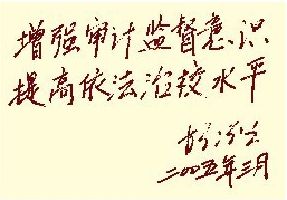 增强审计监督意识
提高依法治校水平
二00五年三月